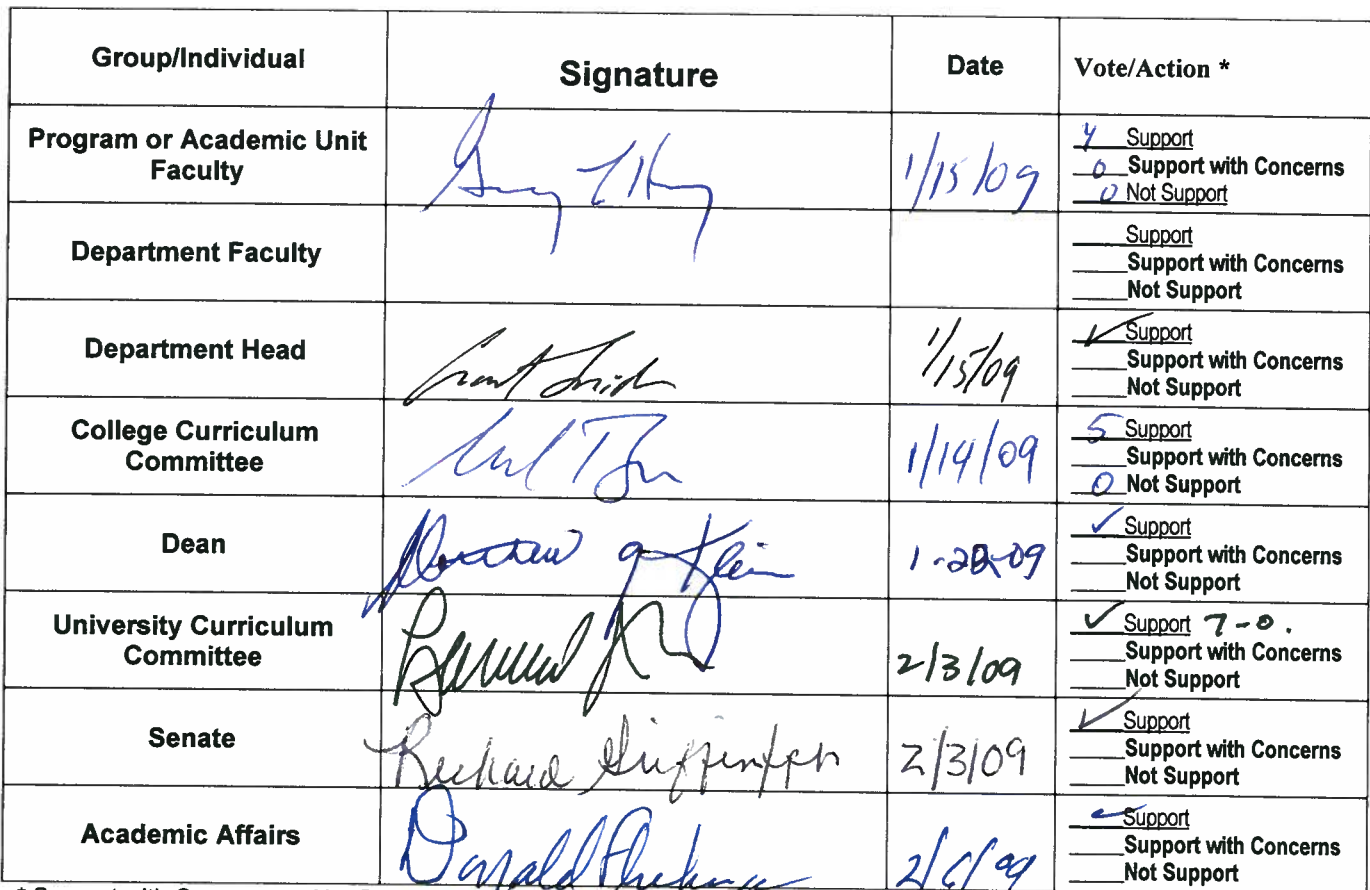 Group/Individual Signature Date Vote/Action *
Program or Academic Unit
Faculty
1/15/09
4 Support
0 Support with Concerns
0 Not Support
Department Faculty
Support
Support with Concerns
Not Support
Department Head
1/15/09
✓ Support
Support with Concerns
Not Support
College Curriculum
Committee
1/14/09
5 Support
Support with Concerns
0 Not Support
Dean
Klein
✓ Support
Support with Concerns
Not Support
University Curriculum
Committee
2/3/09
✓ Support 7-0.
Support with Concerns
Not Support
Senate
Richard
2/3/09
✓ Support
Support with Concerns
Not Support
Academic Affairs
Donald
✓ Support
Support with Concerns
Not Support